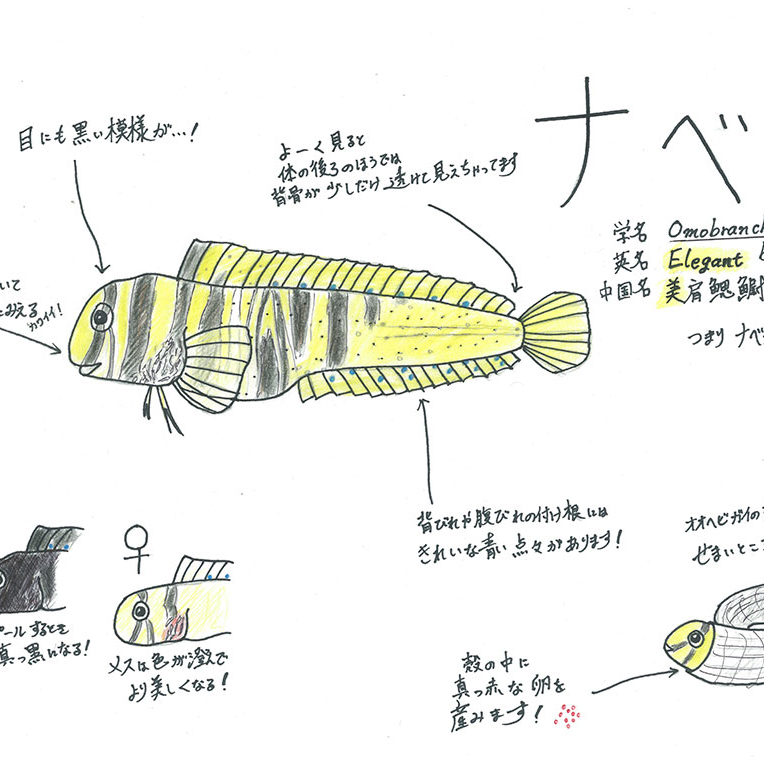 目にも黒い模様が…!
よーく見ると
体の後ろのほうでは
背骨が少しだけ透けて見えちゃってます
ナベ
学名 Omobranch
英名 Elegant
中国名 美肩鰓鳚
つまり ナベ
いて
みえる
カワイイ!
背びれや腹びれの付け根には
きれいな青い点々があります!
オオヘビガイの
せまいところ
♀
ールすると
真っ黒になる!
メスは色が澄んで
より美しくなる!
殻の中に
真っ赤な卵を
産みます!